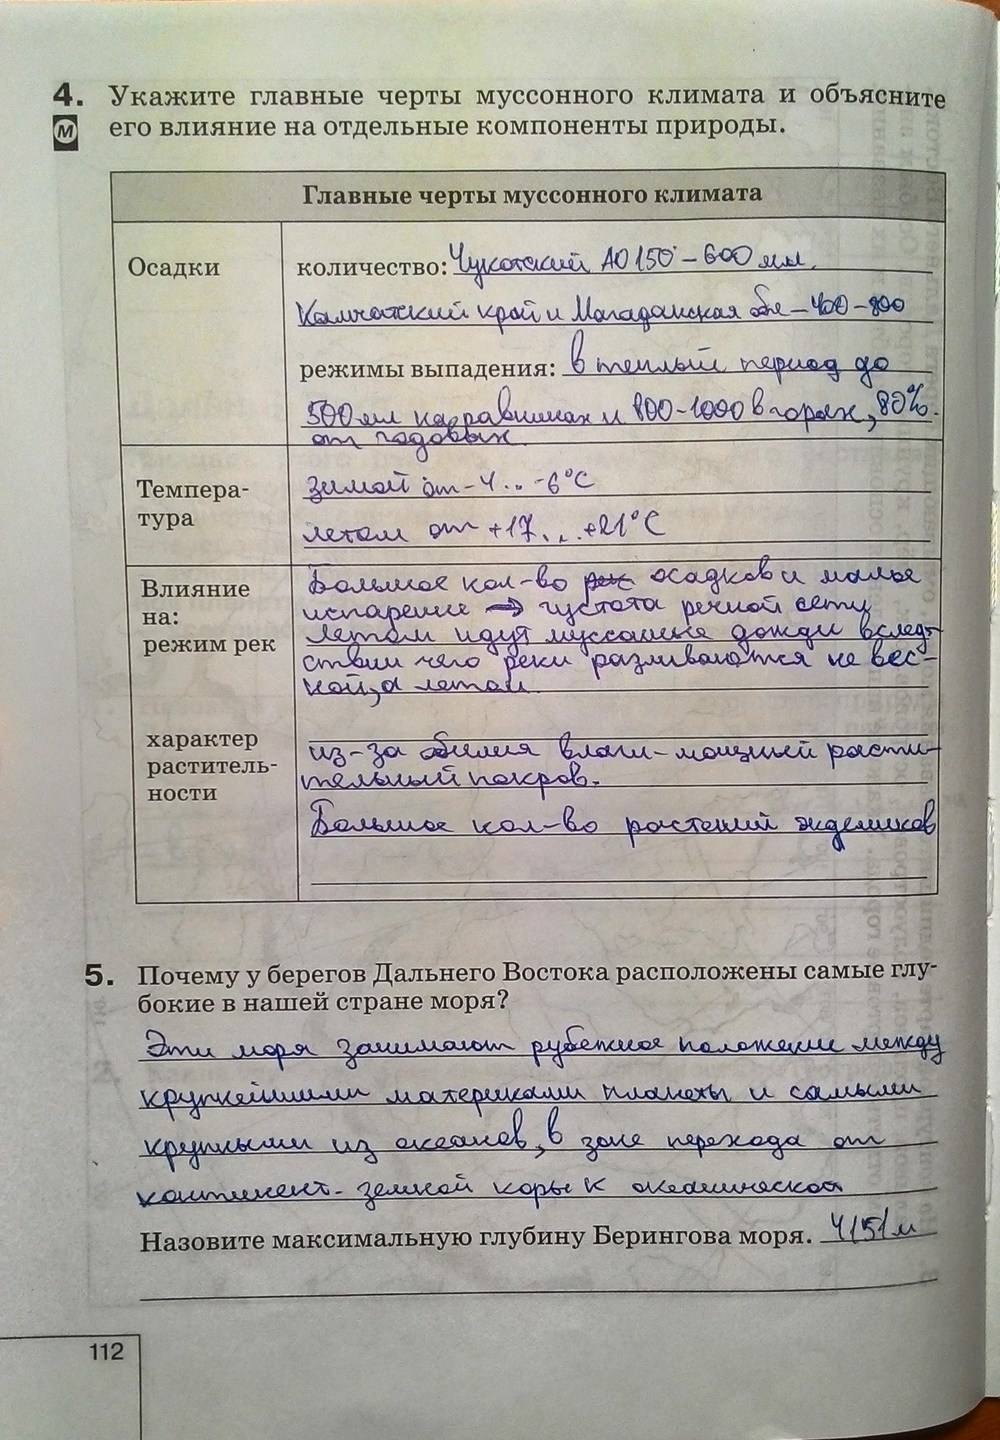 4. Укажите главные черты муссонного климата и объясните
М его влияние на отдельные компоненты природы.
Главные черты муссонного климата
Осадки
количество: Чукотский АО 150 - 600 мм.
Камчатский край и Магаданская обл - 400 - 800
режимы выпадения: в теплый период до
500 мл на равнинах и 800-1000 в горах, 80%.
от годовых.
Темпера-
тура
зимой от -4 ... -6°С
летом от +17 ... +21°С
Влияние
на:
режим рек
Большое кол-во осадков и малое
испарение → густота речной сети
Летом идут муссонные дожди вслед-
ствии чего реки разливаются не вес-
ной, а летом.
характер
раститель-
ности
из-за обилия влаги - мощный расти-
тельный покров.
Большое кол-во растений эндемиков
5. Почему у берегов Дальнего Востока расположены самые глу-
бокие в нашей стране моря?
Эти моря занимают рубежное положение между
крупнейшими материками планеты и самыми
крупными из океанов, в зоне перехода от
континент. земной коры к океанической
Назовите максимальную глубину Берингова моря. 4151 м
112